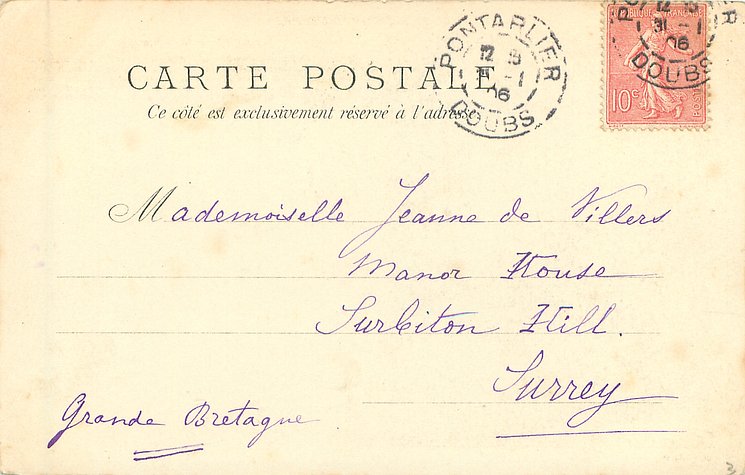 CARTE POSTALE
Ce côté est exclusivement réservé à l'adresse
PONTARLIER
31 - 1
06
DOUBS
REPUBLIQUE FRANÇAISE
10c
POSTES
31 - 1
06
DOUBS
Mademoiselle Jeanne de Villers
Manor House
Surbiton Hill.
Surrey
Grande Bretagne.